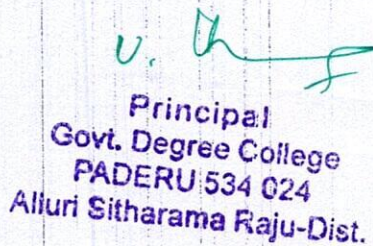 Principal
Govt. Degree College
PADERU 534 024
Alluri Sitharama Raju-Dist.